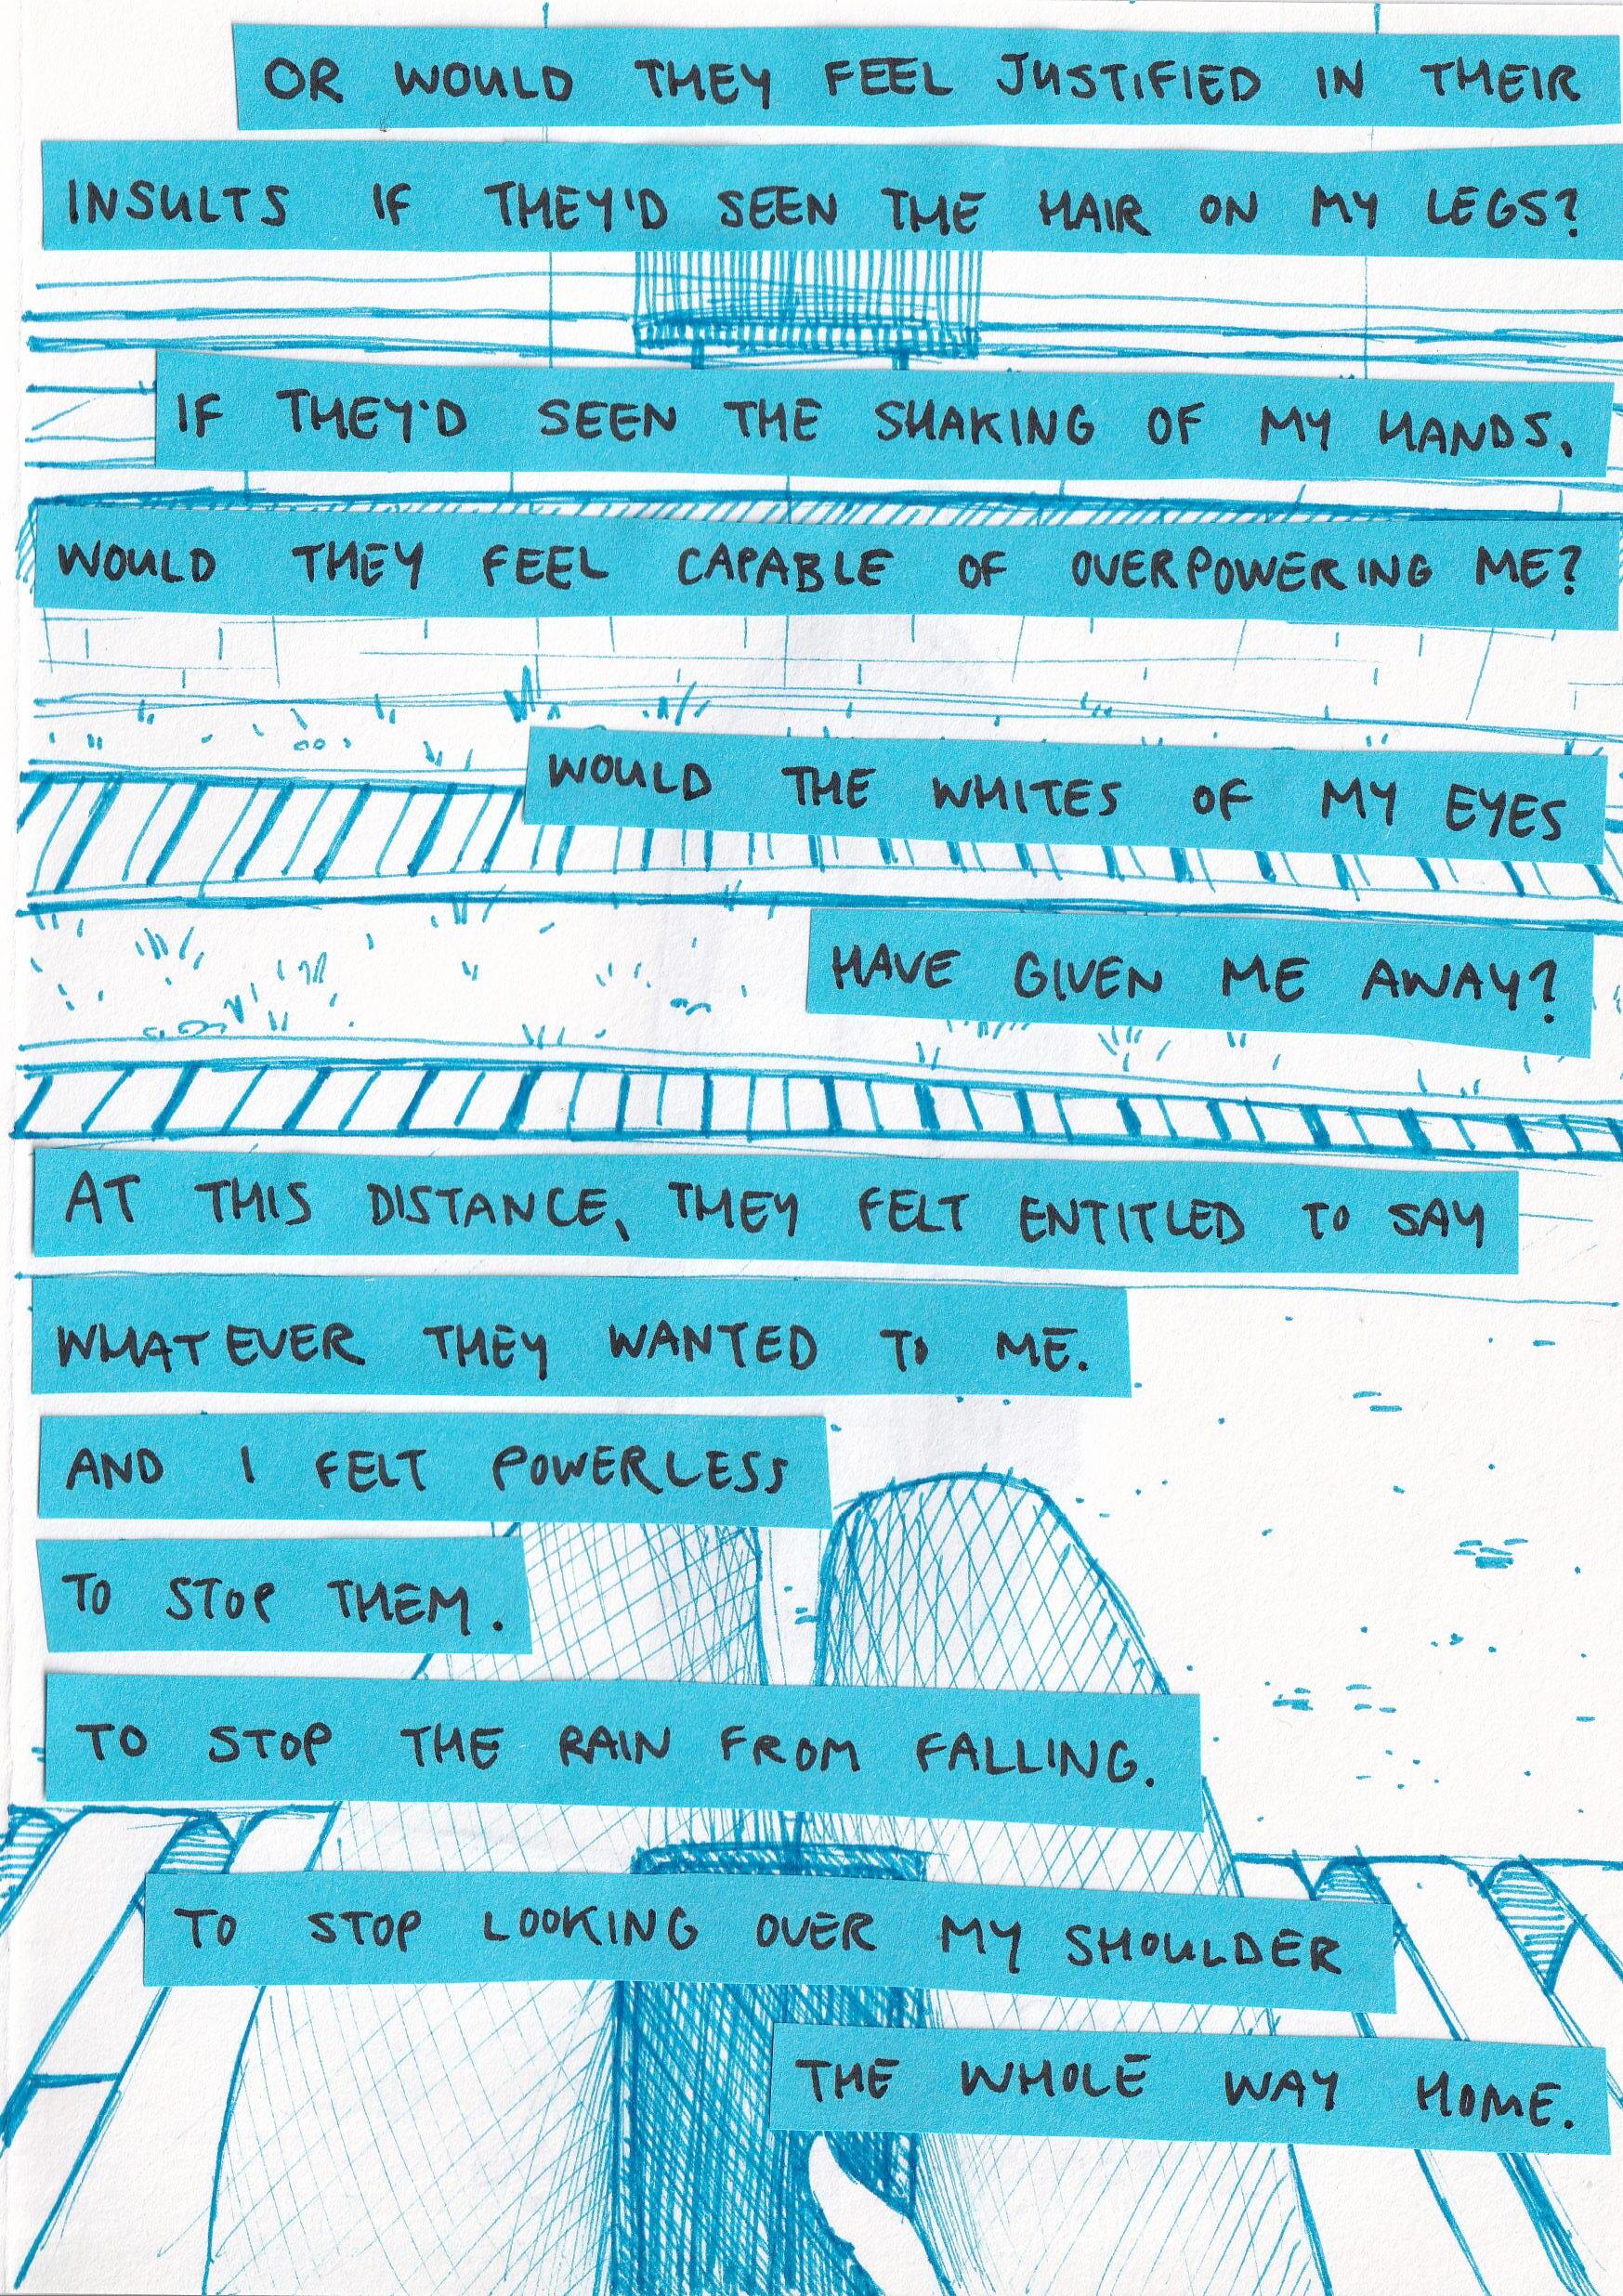 OR WOULD THEY FEEL JUSTIFIED IN THEIR
INSULTS IF THEY'D SEEN THE HAIR ON MY LEGS?
IF THEY'D SEEN THE SHAKING OF MY HANDS,
WOULD THEY FEEL CAPABLE OF OVERPOWERING ME?
WOULD THE WHITES OF MY EYES
HAVE GIVEN ME AWAY?
AT THIS DISTANCE, THEY FELT ENTITLED TO SAY
WHATEVER THEY WANTED TO ME.
AND I FELT POWERLESS
TO STOP THEM.
TO STOP THE RAIN FROM FALLING.
TO STOP LOOKING OVER MY SHOULDER
THE WHOLE WAY HOME.